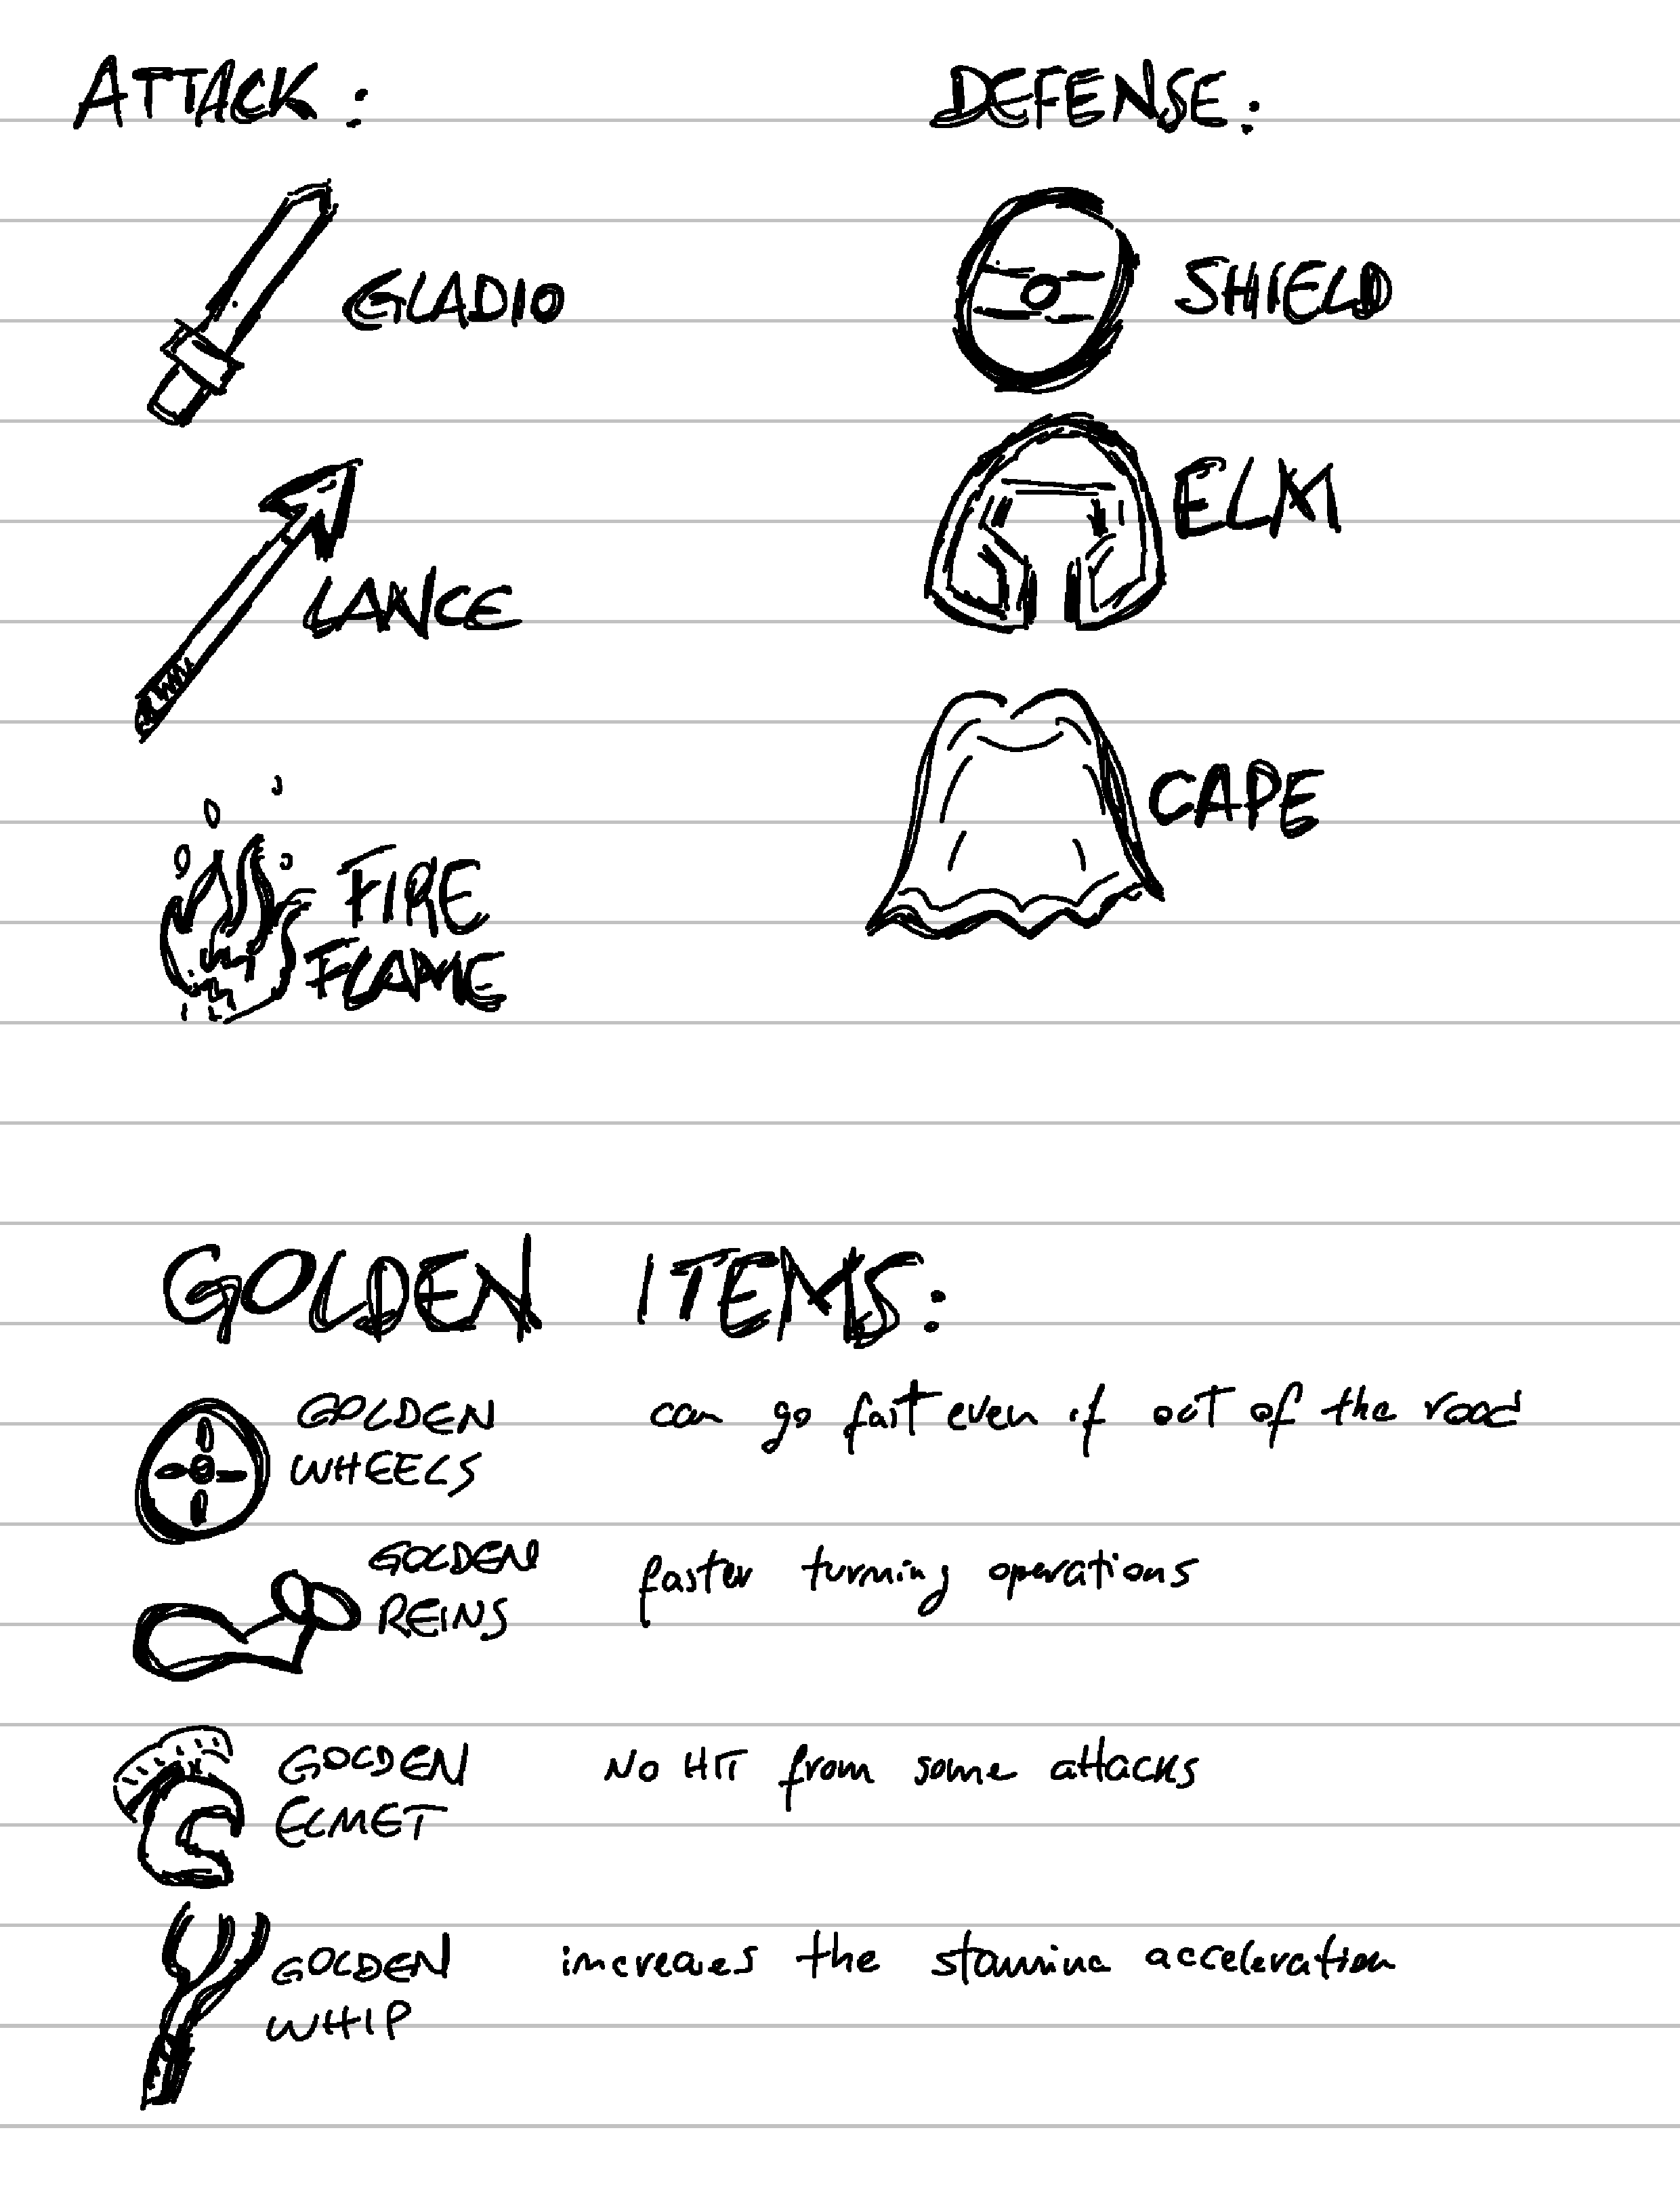 ATTACK:
GLADIO
LANCE
FIRE
FLAME
DEFENSE:
SHIELD
ELM
CAPE
GOLDEN ITEMS:
GOLDEN
WHEELS
can go fast even if out of the road
GOLDEN
REINS
faster turning operations
GOLDEN
ELMET
NO HIT from some attacks
GOLDEN
WHIP
increases the stamina acceleration